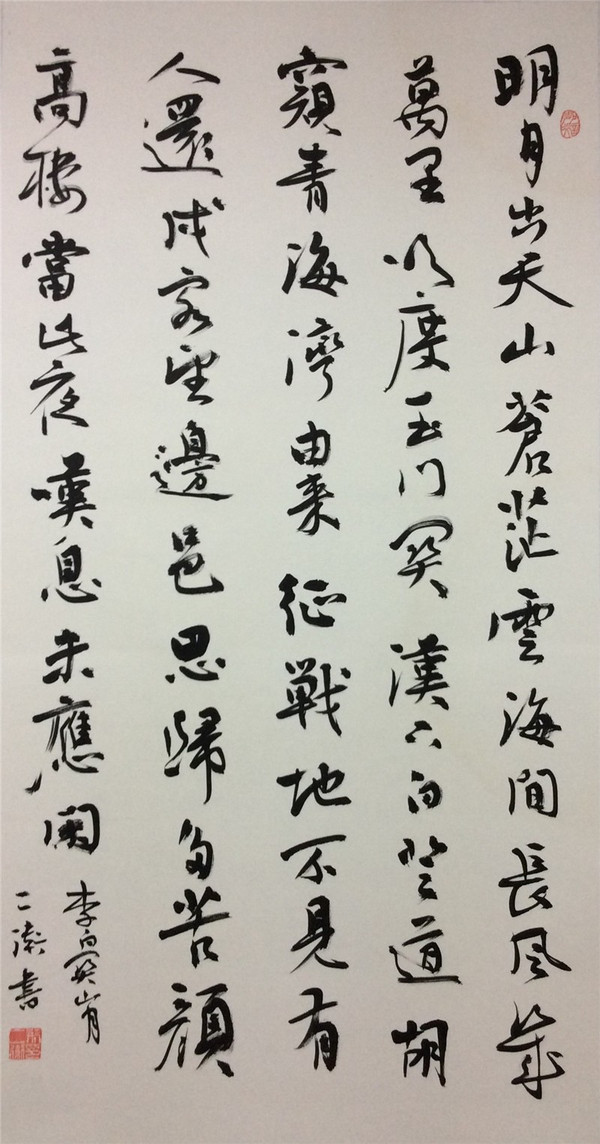 明月出天山蒼茫雲海間長風幾
萬里吹度玉門関漢下白登道胡
窺青海灣由来征戰地不見有
人還戍客望邊邑思歸多苦顏
高樓當此夜嘆息未應閑
李白関山月
書